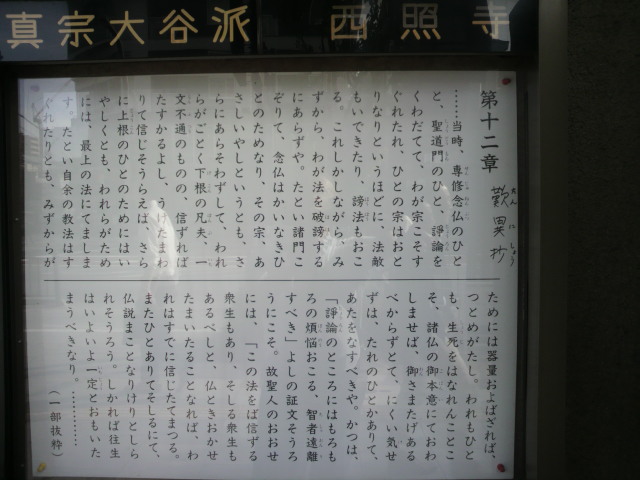 真宗大谷派　西照寺
第十二章
歎異抄
たんにしょう
……当時、専修念仏のひと
と、聖道門のひと、諍論を
くわだてて、わが宗こそす
ぐれたれ、ひとの宗はおと
りなりというほどに、法敵
もいできたり、謗法もおこ
る。これしかしながら、み
ずから、わが法を破謗する
にあらずや。たとい諸門こ
ぞりて、念仏はかいなきひ
とのためなり、その宗、あ
さしいやしというとも、さ
らにあらそわずして、われ
らがごとく下根の凡夫、一
文不通のものの、信ずれば
たすかるよし、うけたまわ
りて信じそうらえば、さら
に上根のひとのためにはい
やしくとも、われらがため
には、最上の法にてましま
す。たとい自余の教法はす
ぐれたりとも、みずからが
ためには器量およばざれば、
つとめがたし。われもひと
も、生死をはなれんことこ
そ、諸仏の御本意にておわ
しませば、御さまたげある
べからずとて、にくい気せ
ずは、たれのひとかありて、
あたをなすべきや。かつは、
「諍論のところにはもろも
ろの煩悩おこる、智者遠離
すべき」よしの証文そうろ
うにこそ。故聖人のおおせ
には、「この法をば信ずる
衆生もあり、そしる衆生も
あるべしと、仏ときおかせ
たまいたることなれば、わ
れはすでに信じたてまつる。
またひとありてそしるにて、
仏説まことなりけりとしら
れそうろう。しかれば往生
はいよいよ一定とおもいた
まうべきなり。…………
（一部抜粋）